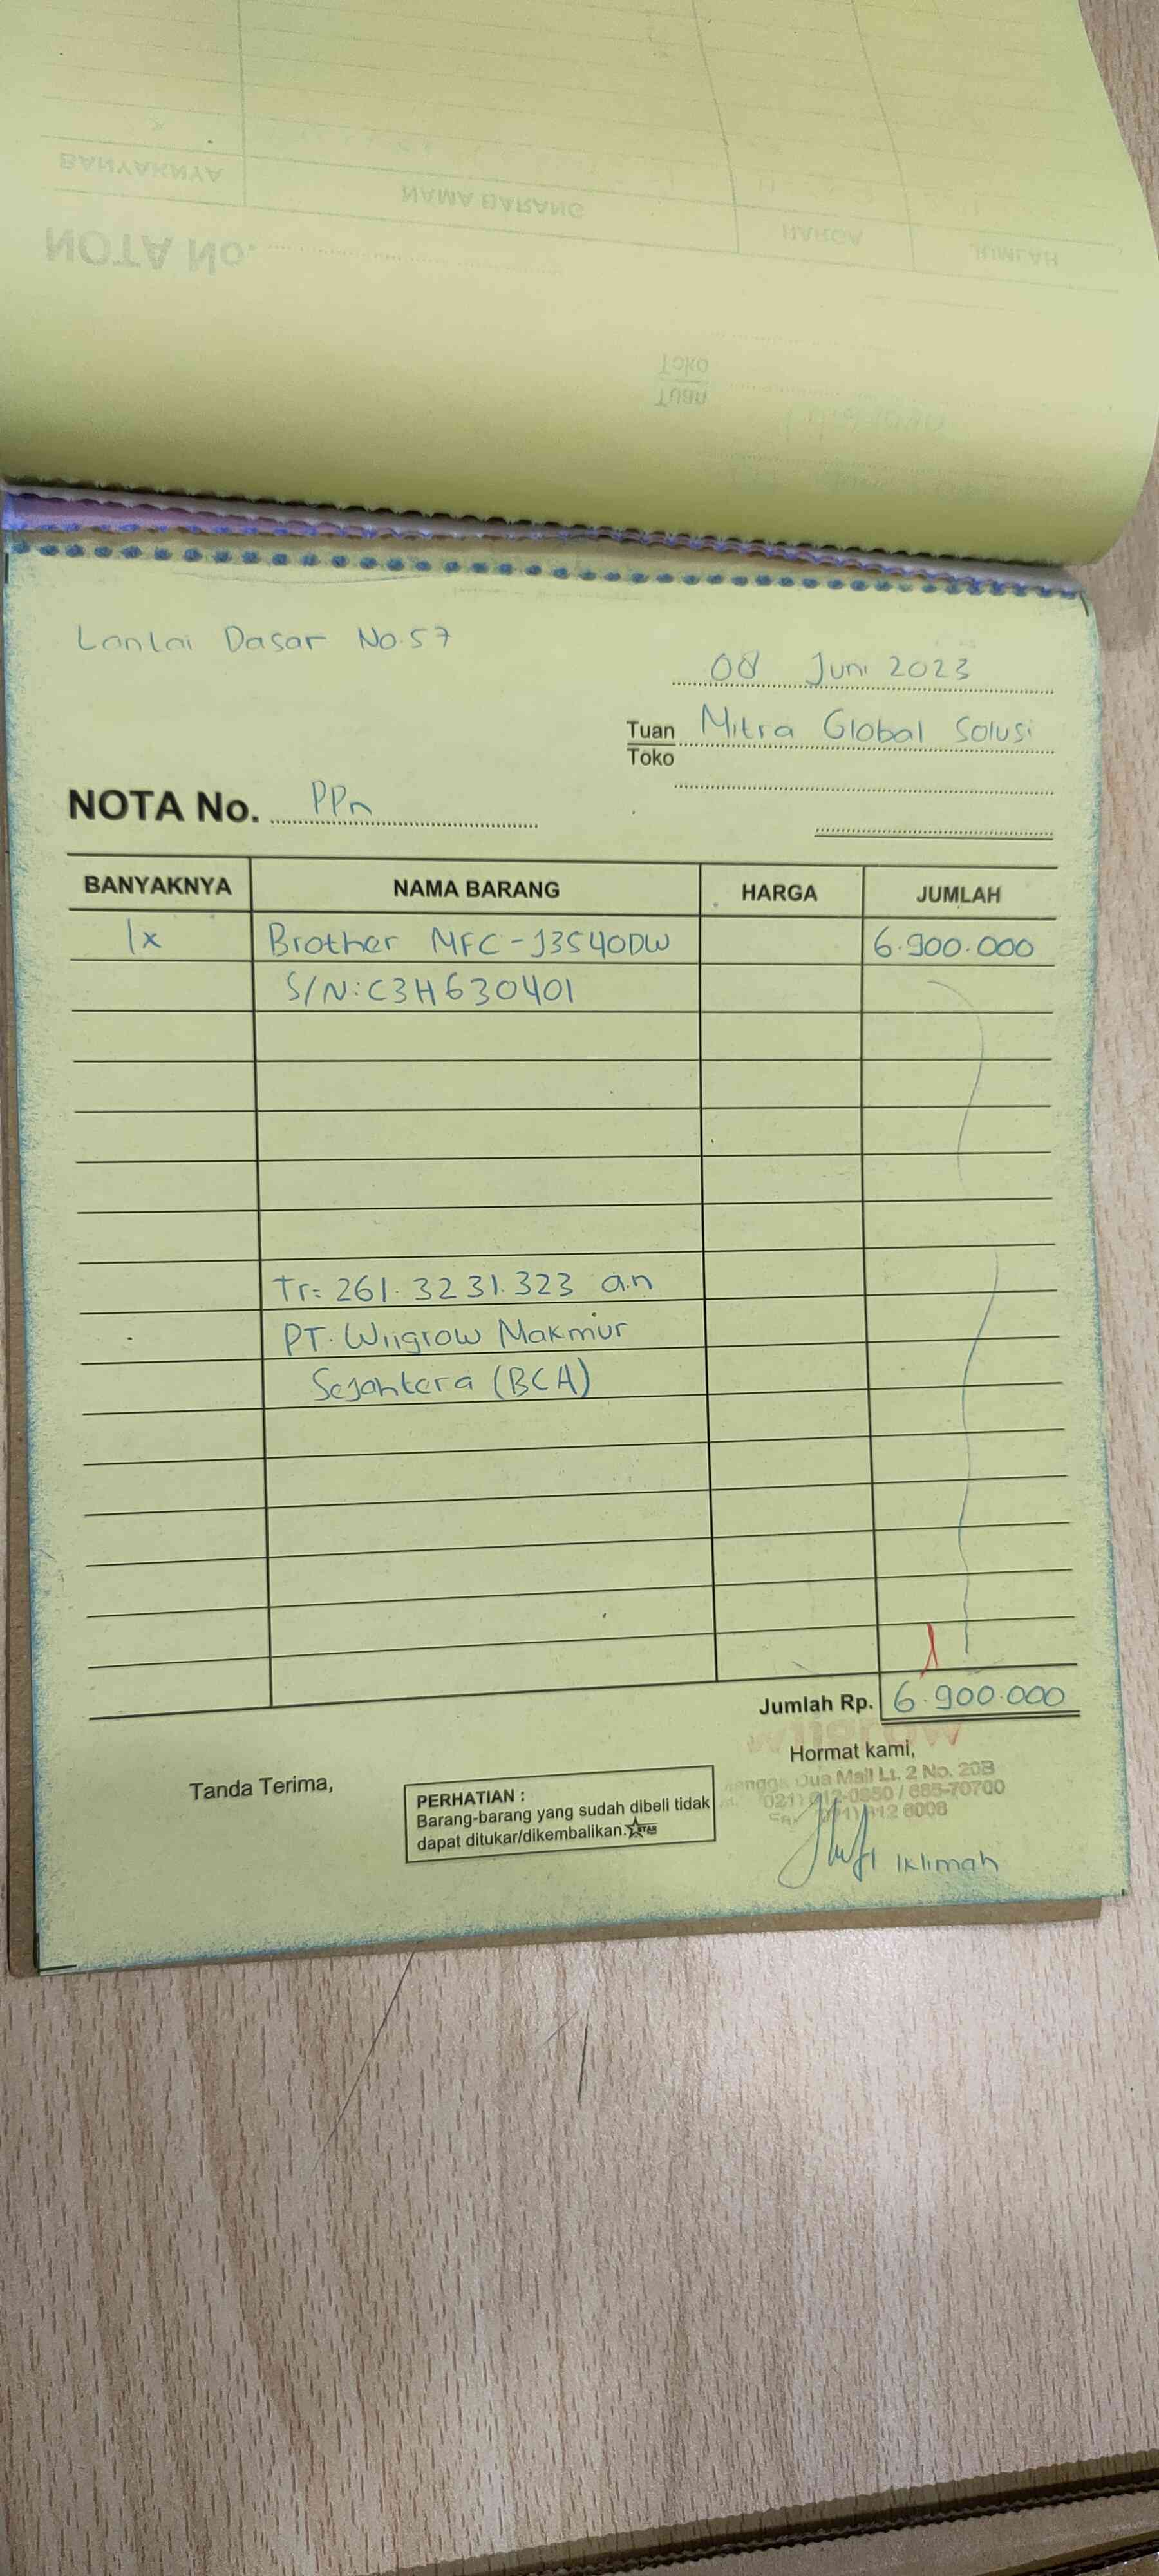 BANYAKNYA
NAMA BARANG
HARGA
JUMLAH
NOTA No.
Toko
Tuan
Lantai Dasar No.57
08 Juni 2023
Tuan Mitra Global Solusi
Toko
NOTA No. PPn
BANYAKNYA NAMA BARANG HARGA JUMLAH
1x Brother MFC-J3540DW 6.900.000
S/N:C3H630401
Tr= 261.3231.323 a.n
PT. Wiigrow Makmur
Sejahtera (BCA)
Jumlah Rp. 6.900.000
Tanda Terima,
PERHATIAN :
Barang-barang yang sudah dibeli tidak
dapat ditukar/dikembalikan.
Hormat kami,
Dua Mall Lt. 2 No. 20B
6008
Iklimah